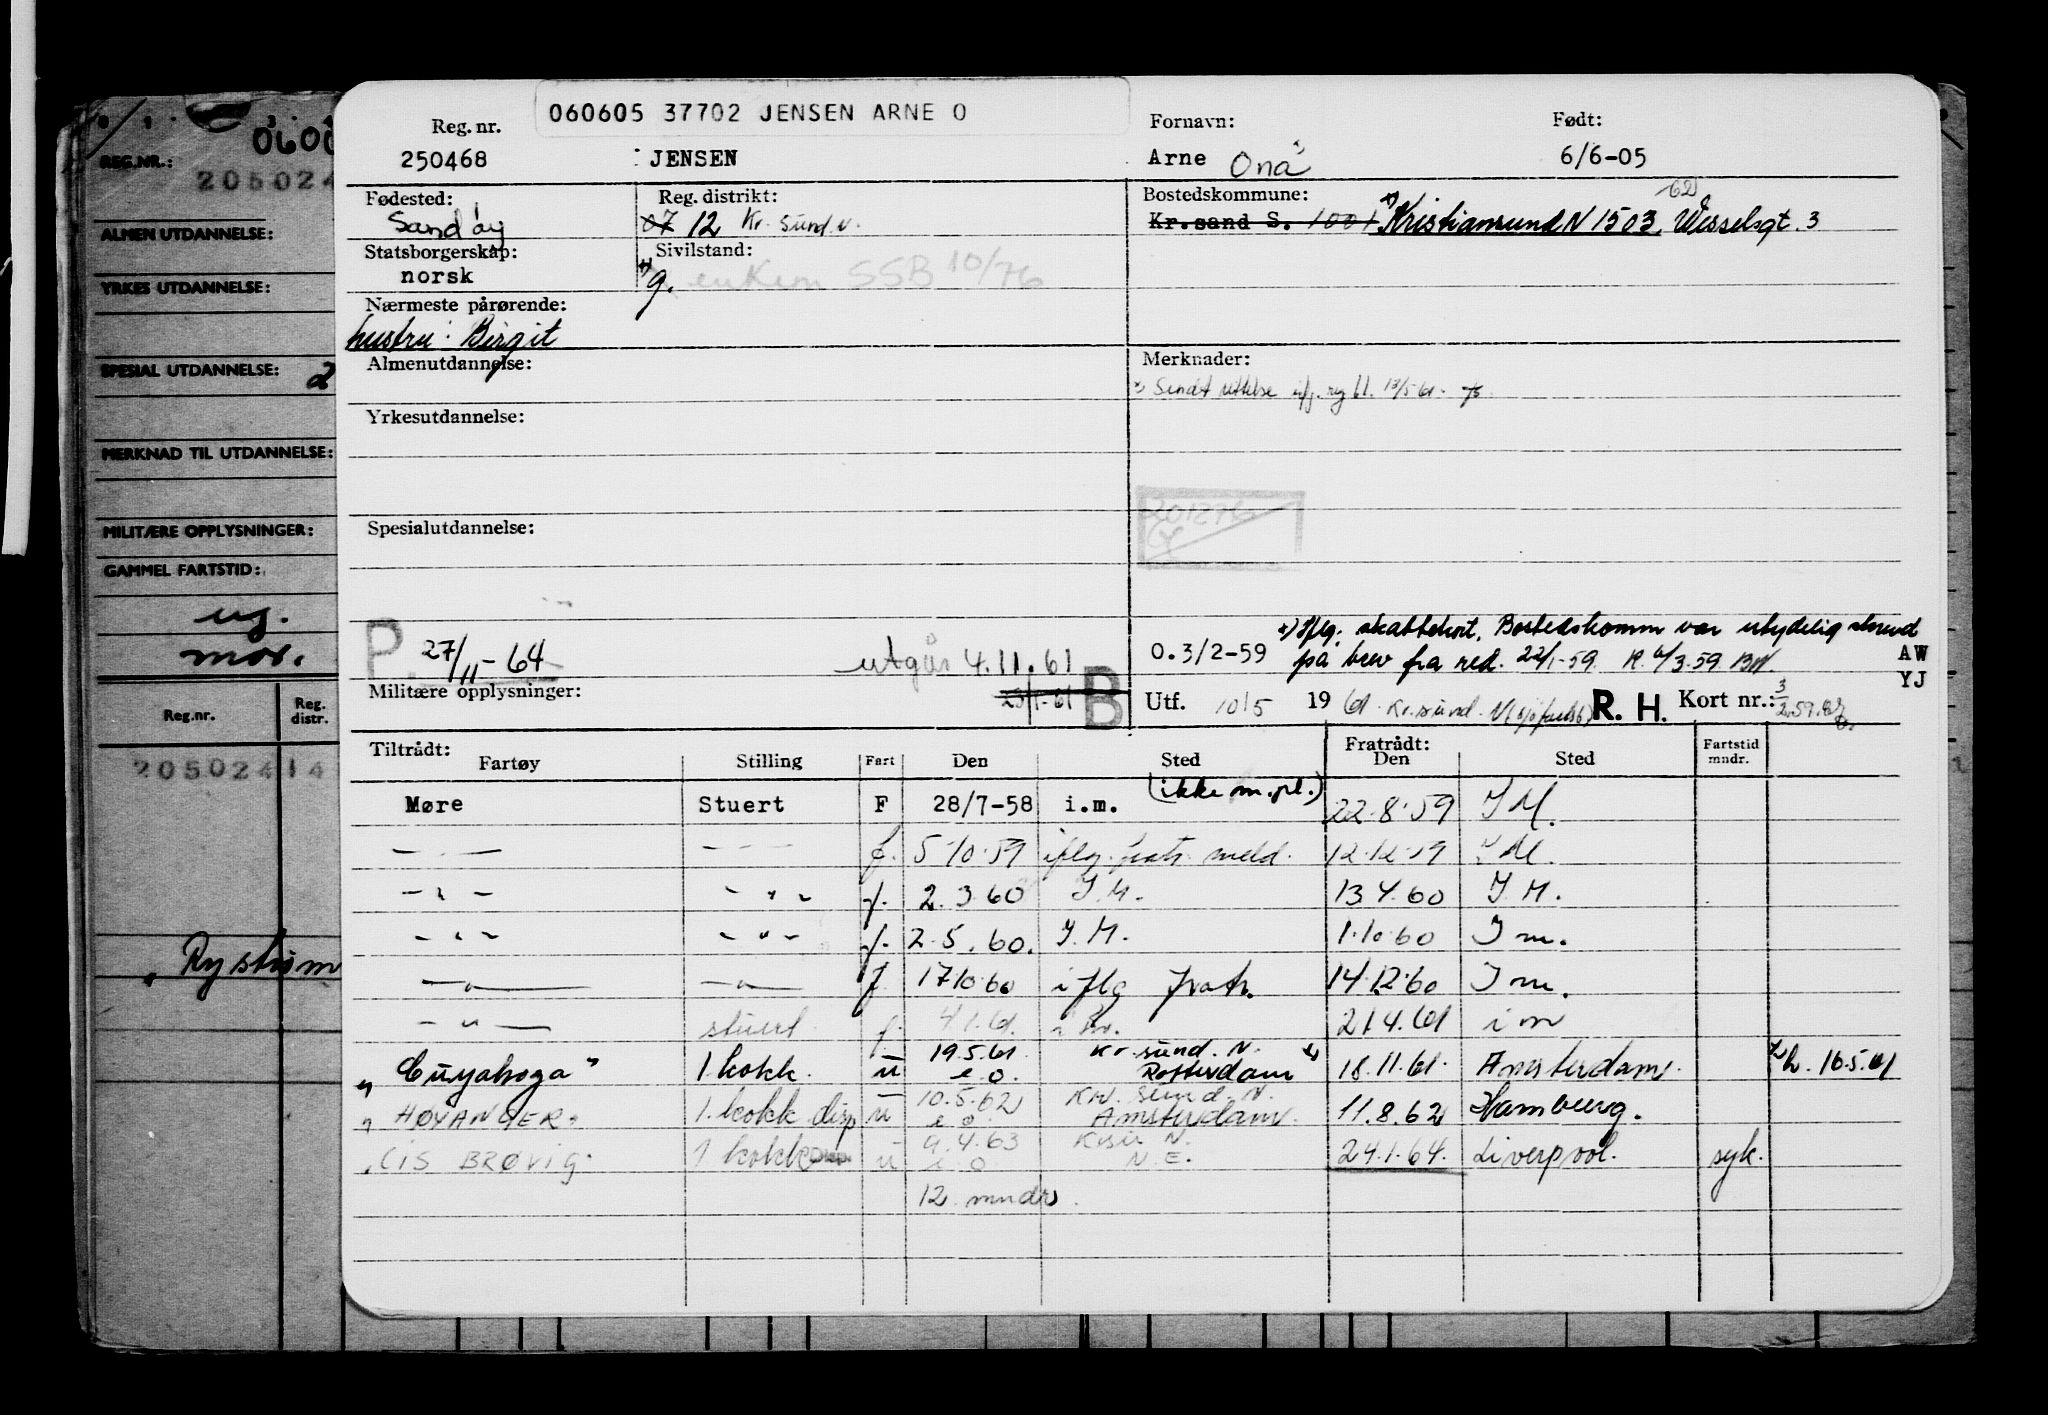 060605 37702 JENSEN ARNE O
Reg. nr. Fornavn: Født:
250468 JENSEN Arne Ona 6/6-05
Fødested: Reg. distrikt: Bostedskommune:
Sandøy 07 12 Kr. sund. N. Kr.sand S. 1001 Kristiansund N 1503, Wesselsgt. 3
Statsborgerskap: Sivilstand:
norsk g. enkem SSB 10/76
Nærmeste pårørende:
hustru: Birgit
Almenutdannelse: Merknader:
Sendt rettelse
Yrkesutdannelse:
Spesialutdannelse:
201276
P. 27/11-64 utgår 4.11.61
O.3/2-59 x) Iflg. skattekort, Bostedskomm var utydelig skrevet
på brev fra red. 22/1-59. AW
YJ
Militære opplysninger: 25/1-61 B Utf. 10/5 1961 Kr.sund. N R. H. Kort nr.: 3
Tiltrådt: Fratrådt:
Fartøy Stilling Fart Den Sted Den Sted Fartstid mndr.
Møre Stuert F 28/7-58 i.m. (ikke m.pl.) 22.8.59 I M.
— " — — " — f. 5.10.59 iflg. fratr. meld. 12.12.59 I M.
— " — — " — f. 2.3.60 I. M. 13.4.60 I. M.
— " — — " — f. 2.5.60. I. M. 1.10.60 I m.
— " — — " — f 17.10.60 iflg fratr. 14.12.60 I m.
— " — stuert f. 4.1.61. 21.4.61 i m
19.5.61 Kr.sund. N.
"Cuyahoga" 1. kokk. u e.o. Rotterdam 18.11.61. Amsterdam. 16.5.61
10.5.62 Kr. sund. N.
"HØYANGER" 1. kokk disp u e.o. Amsterdam. 11.8.62 Hamburg.
9.4.63 Krsu N.
"CIS BRØVIG" 1 kokk u e.o N.E. 24.1.64. Liverpool. syk.
12 mndr.
REG.NR.:
205024
ALMEN UTDANNELSE:
YRKES UTDANNELSE:
SPESIAL UTDANNELSE: 2
MERKNAD TIL UTDANNELSE:
MILITÆRE OPPLYSNINGER:
GAMMEL FARTSTID:
ug.
mor.
Reg.nr. Reg. distr.
205024 14
Rystrøm